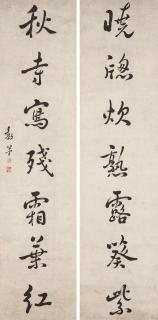 曉窗炊熟露葵紫
秋寺寫殘霜葉紅